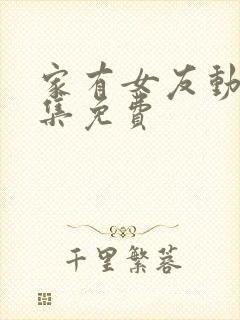 家有女友動
集免費
千里繁蓉